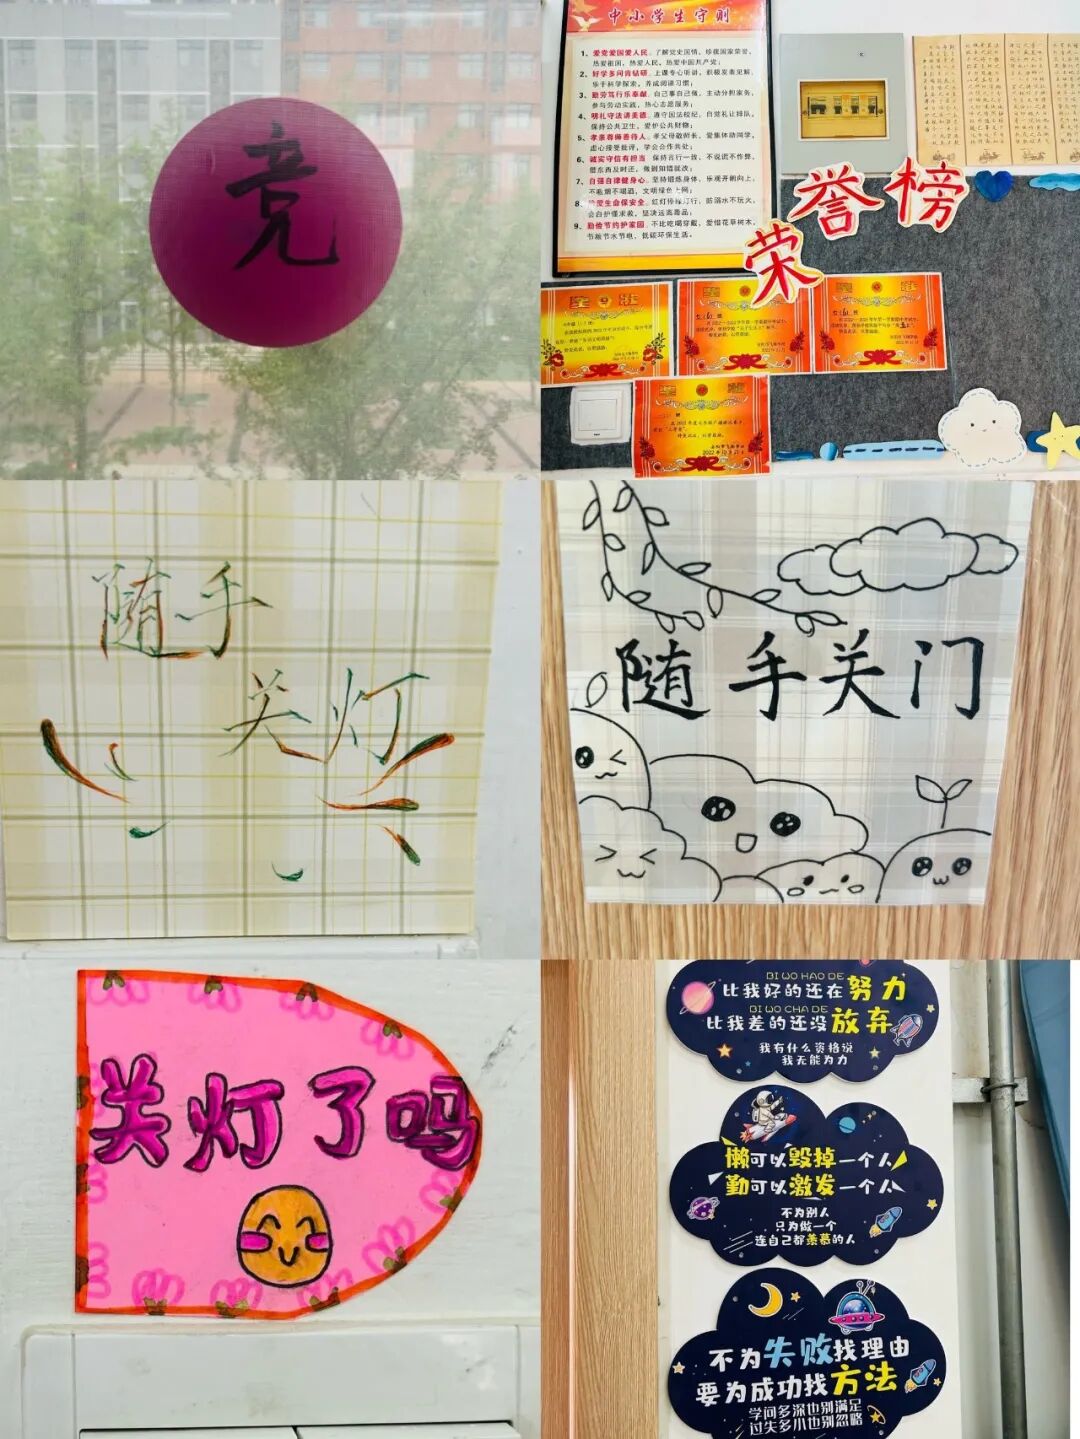 竞
中小学生守则
1、爱党爱国爱人民。了解党史国情，珍视国家荣誉，
热爱祖国，热爱人民，热爱中国共产党；
2、好学多问肯钻研。上课专心听讲，积极发表见解，
乐于科学探索，养成阅读习惯；
3、勤劳笃行乐奉献。自己事自己做，主动分担家务，
参与劳动实践，热心志愿服务；
4、明礼守法讲美德。遵守国法校纪，自觉礼让排队，
保持公共卫生，爱护公共财物；
5、孝亲尊师善待人。孝父母敬师长，爱集体助同学，
虚心接受批评，学会合作共处；
6、诚实守信有担当。保持言行一致，不说谎不作弊，
借东西及时还，做到知错就改；
7、自强自律健身心。坚持锻炼身体，乐观开朗向上，
不吸烟不喝酒，文明绿色上网；
8、珍爱生命保安全。红灯停绿灯行，防溺水不玩火，
会自护懂求救，坚决远离毒品；
9、勤俭节约护家园。不比吃喝穿戴，爱惜花草树木，
节粮节水节电，低碳环保生活。
荣誉榜
随手
关灯
随手关门
关灯了吗
BI WO HAO DE
比我好的还在努力
BI WO CHA DE
比我差的还没放弃
我有什么资格说
我无能为力
懒可以毁掉一个人
勤可以激发一个人
不为别人
只为做一个
连自己都羡慕的人
不为失败找理由
要为成功找方法
学问多深也别满足
过失多小也别忽略